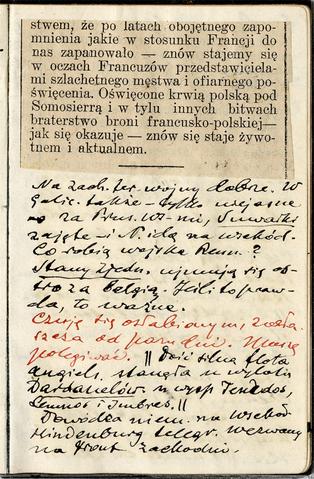 stwem, że po latach obojętnego zapo-
mnienia jakie w stosunku Francji do
nas zapanowało — znów stajemy się
w oczach Francuzów przedstawiciela-
mi szlachetnego męstwa i ofiarnego po-
święcenia. Oświęcone krwią polską pod
Somosierrą i w tylu innych bitwach
braterstwo broni francusko-polskiej—
jak się okazuje — znów się staje żywo-
tnem i aktualnem.
Na zach. ter. wojny dobrze. W
Galic. także – tylko
za Prus. Suwałki
zajęte i N. idą na wschód.
Co robią wojska Russ.?
Stany Zjedn. ujmują się os-
tro za Belgią. Jeśli to praw-
da, to ważne.
Czuję się osłabionym, zwła-
szcza od paru dni. Muszę
polegiwać. || Dziś silna flota
angiels. stanęła u wylotu
Dardanelów u wysp Tenedos,
Lemnos i Imbros. ||
Dowódca niem. na wschod.
Hindenburg telegr. wezwany
na front zachodni.